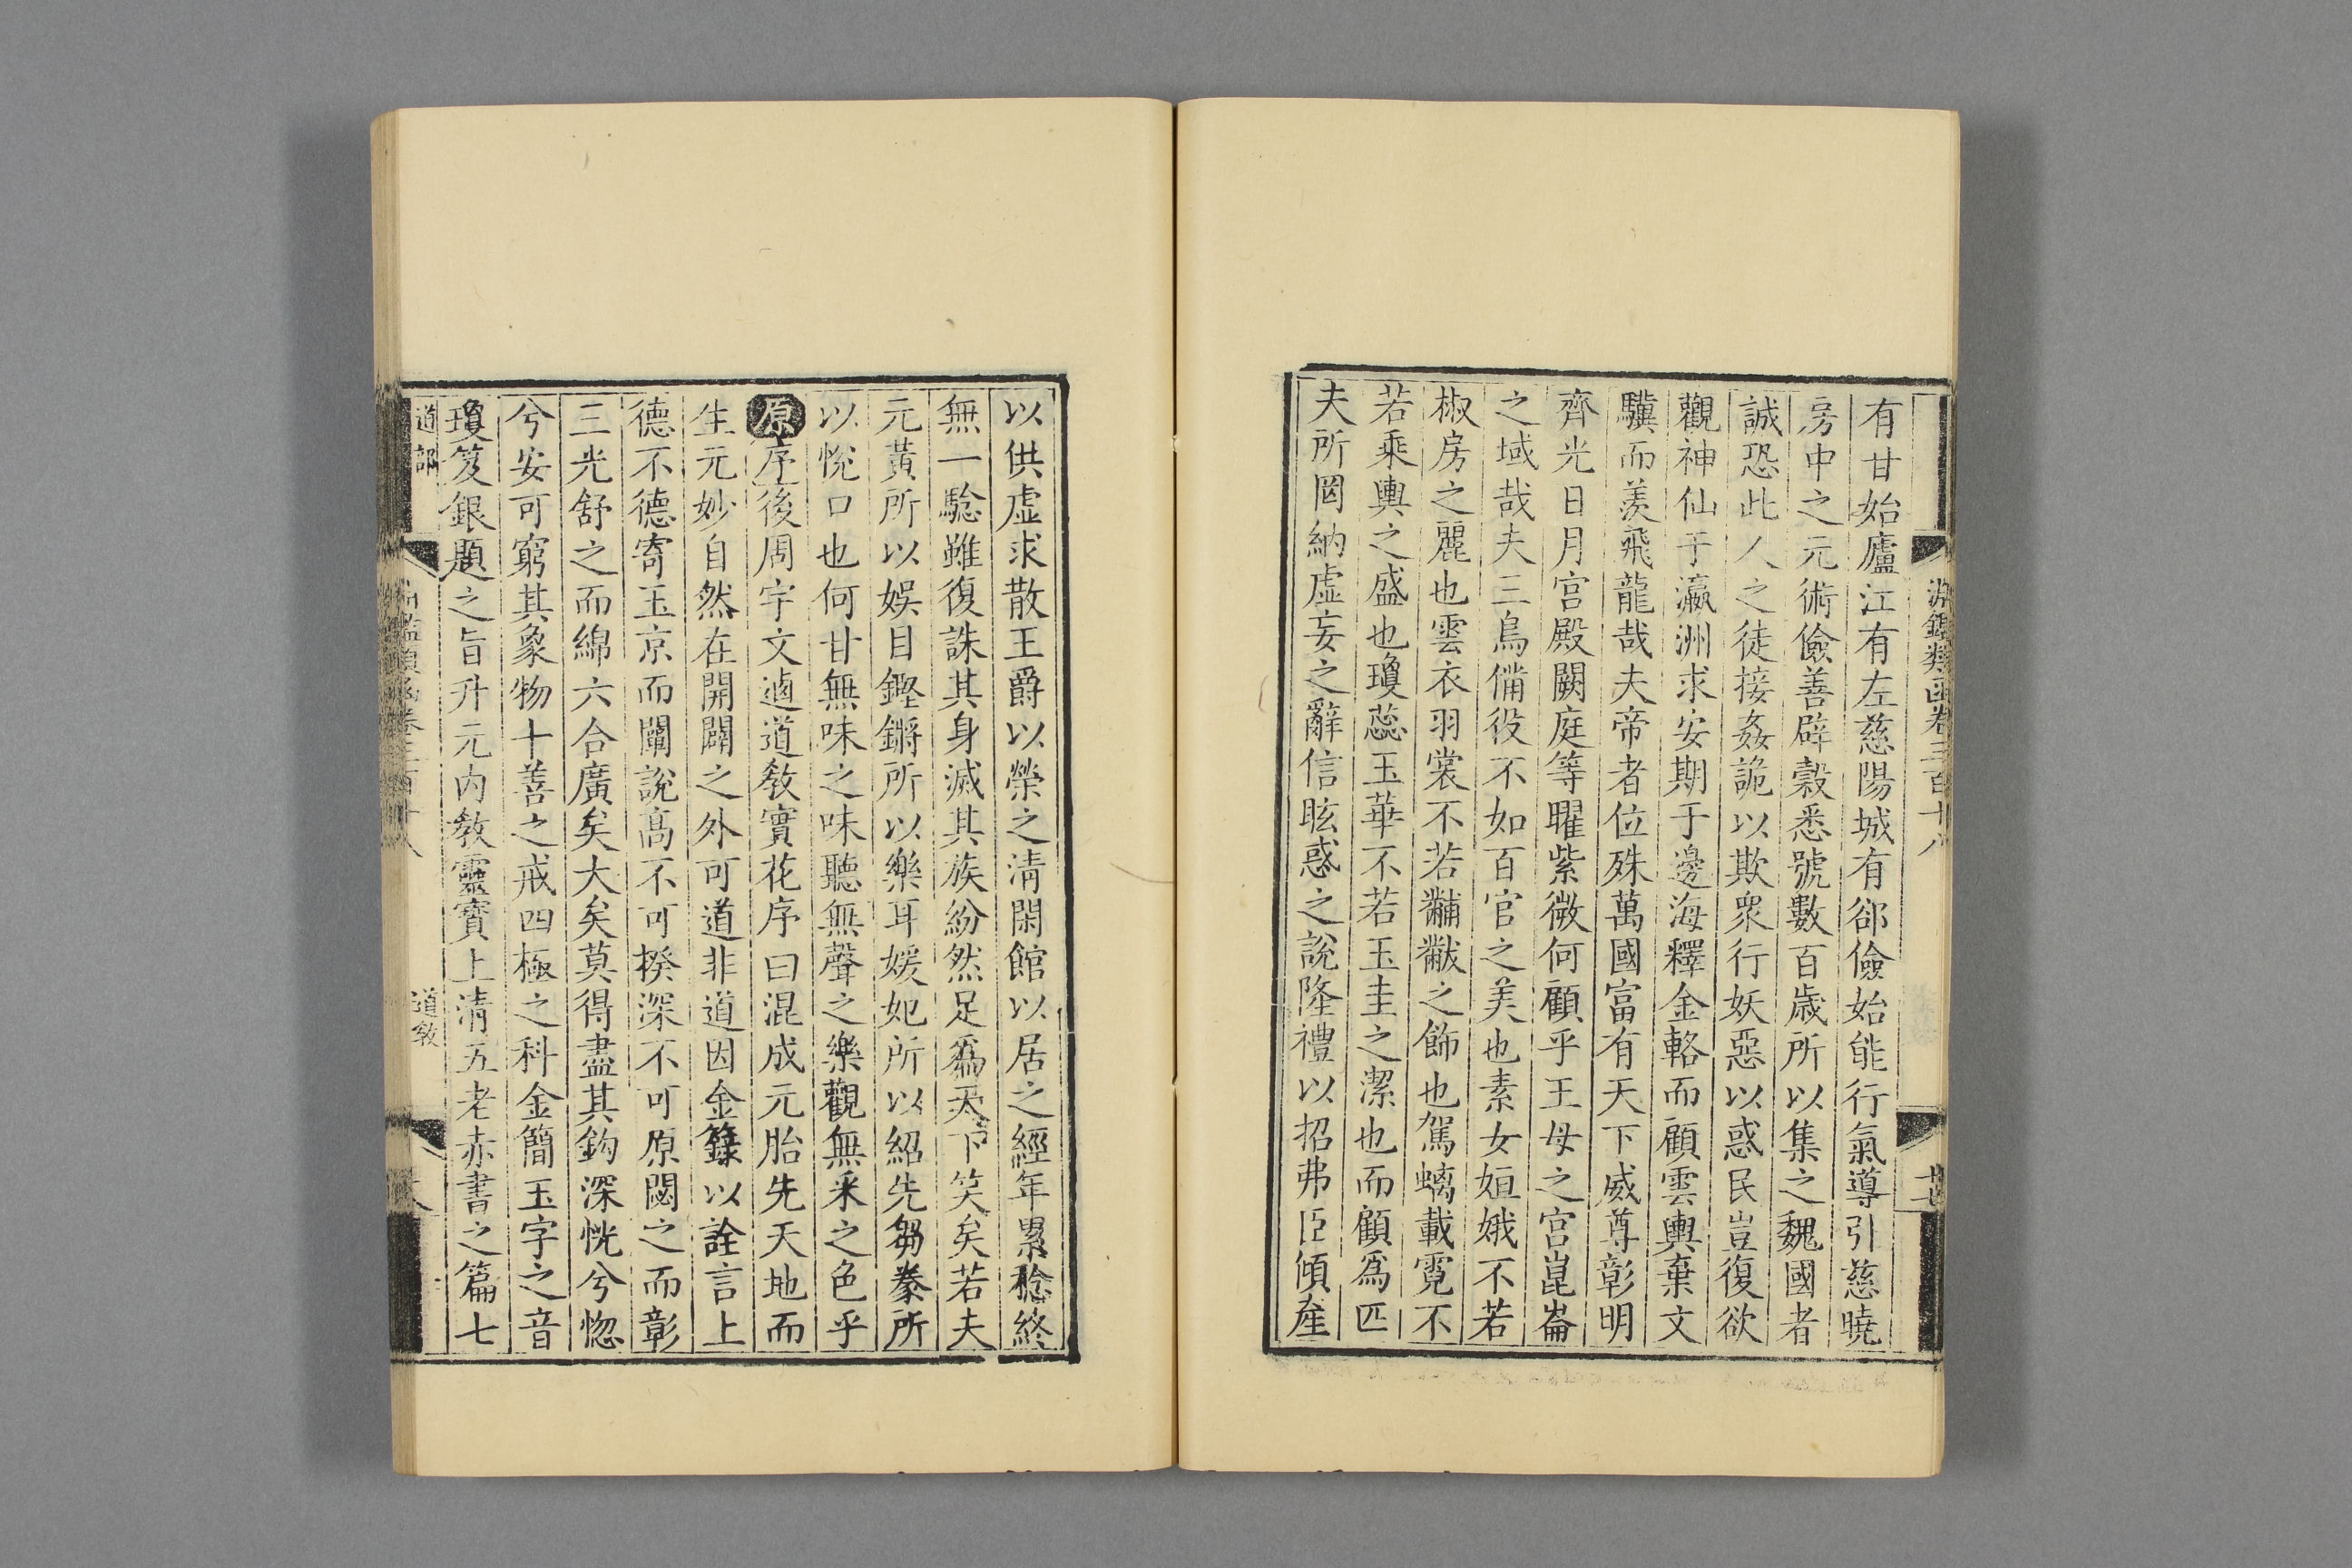 淵鑑類函卷三百十八
有甘始廬江有左慈陽城有郤儉始能行氣導引慈曉
房中之元術儉善辟穀悉號數百歲所以集之魏國者
誠恐此人之徒接姦詭以欺衆行妖惡以惑民豈復欲
觀神仙于瀛洲求安期于邊海釋金輅而顧雲輿棄文
驥而羨飛龍哉夫帝者位殊萬國富有天下威尊彰明
齊光日月宮殿闕庭等曜紫微何顧乎王母之宮崑崙
之域哉夫三鳥備役不如百官之美也素女姮娥不若
椒房之麗也雲衣羽裳不若黼黻之飾也駕螭載霓不
若乘輿之盛也瓊蕊玉華不若玉圭之潔也而顧爲匹
夫所罔納虛妄之辭信眩惑之說隆禮以招弗臣傾産
以供虛求散王爵以榮之淸閑館以居之經年累稔終
無一驗雖復誅其身滅其族紛然足爲天下笑矣若夫
元黃所以娛目鏗鏘所以樂耳媛妃所以紹先芻豢所
以悅口也何甘無味之味聽無聲之樂觀無采之色乎
原序後周宇文逌道敎實花序曰混成元胎先天地而
生元妙自然在開闢之外可道非道因金籙以詮言上
德不德寄玉京而闡說高不可揆深不可原閟之而彰
三光舒之而綿六合廣矣大矣莫得盡其鈎深恍兮惚
兮安可窮其象物十善之戒四極之科金簡玉字之音
瓊笈銀題之旨升元內敎靈寶上淸五老赤書之篇七
道部
道敎